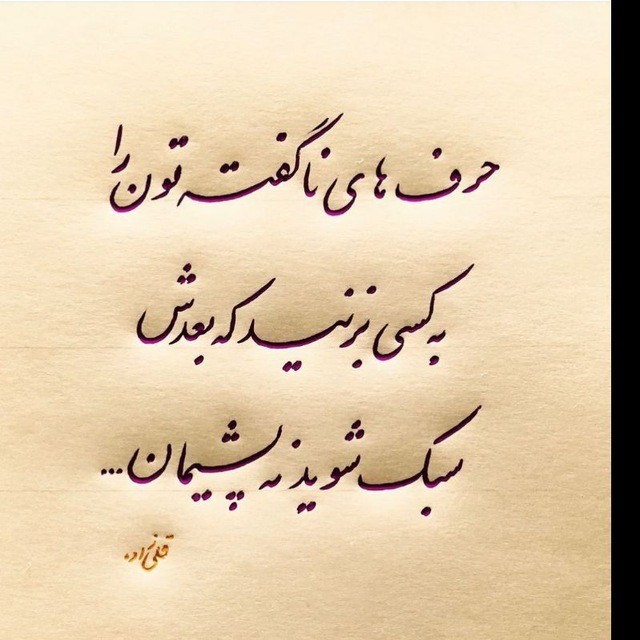 حرف های ناگفته تون را
به کسی بزنید که بعدش
سبک شوید نه پشیمان...
قلی نژاد